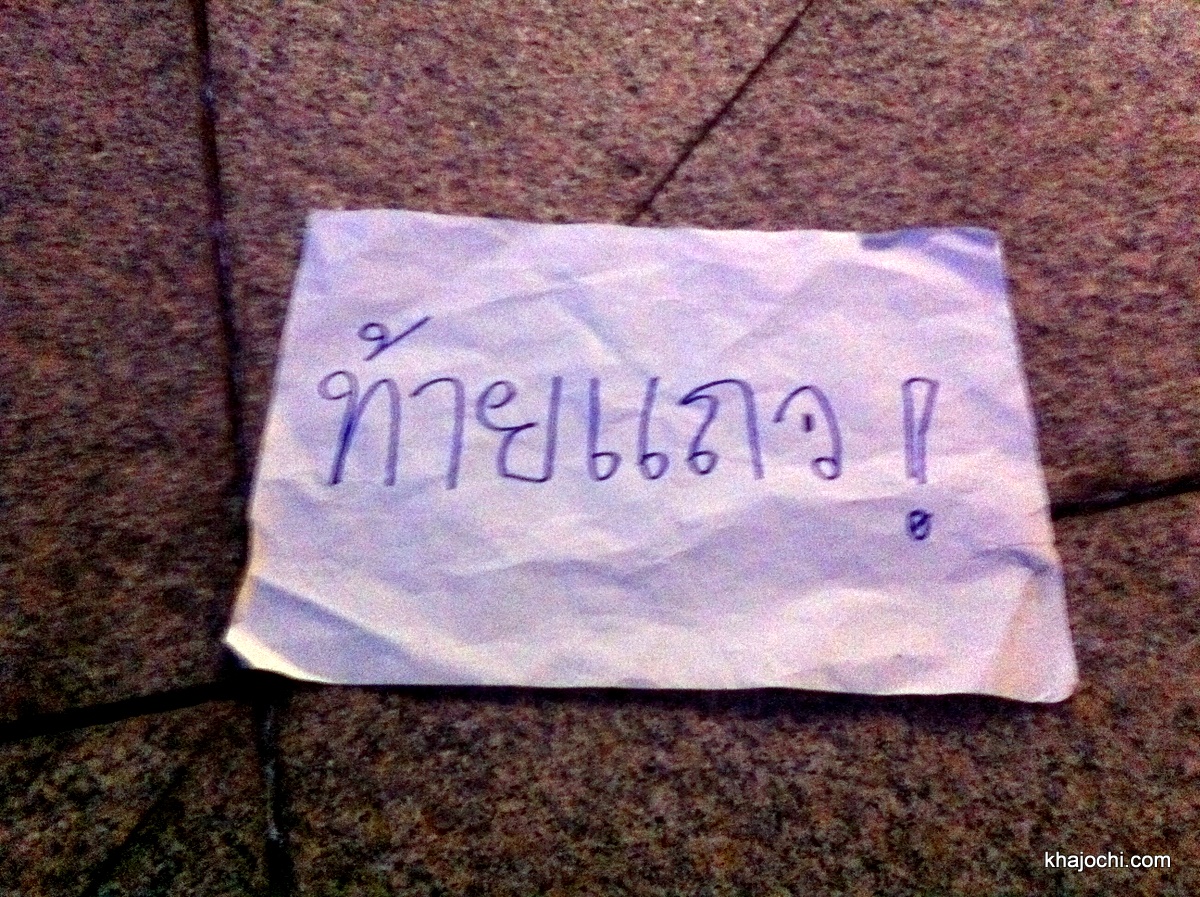 ท้ายแถว !
khajochi.com